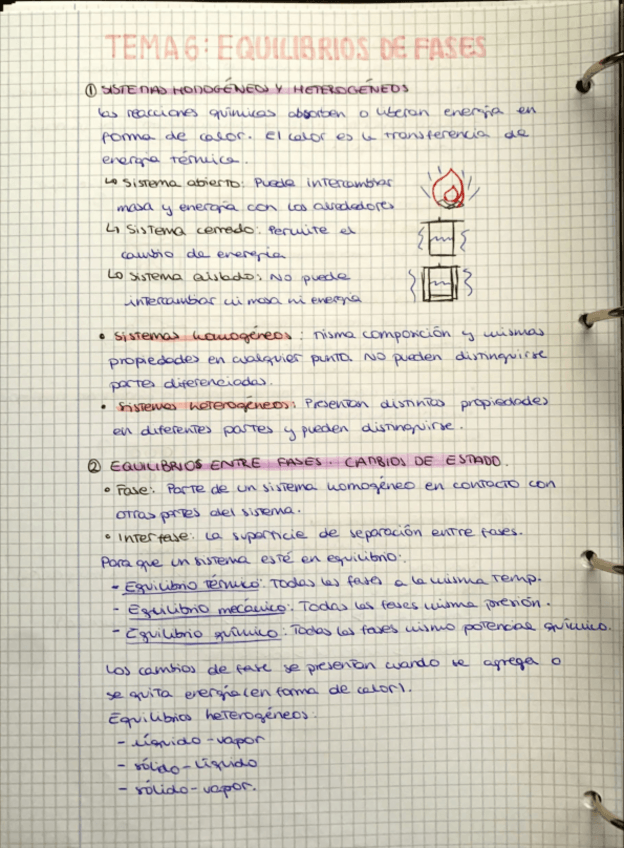 TEMA 6: EQUILIBRIOS DE FASES
① SISTEMAS HOMOGÉNEOS Y HETEROGÉNEOS
las reacciones químicas absorben o liberan energía en
forma de calor. El calor es la transferencia de
energía térmica.
↳ Sistema abierto: Puede intercambiar
masa y energía con los alrededores
↳ Sistema cerrado: Permite el
cambio de energía
↳ Sistema aislado: No puede
intercambiar ni masa ni energía
• Sistemas homogéneos: misma composición y mismas
propiedades en cualquier punto. No pueden distinguirse
partes diferenciadas.
• Sistemas heterogéneos: Presentan distintas propiedades
en diferentes partes y pueden distinguirse.
② EQUILIBRIOS ENTRE FASES. CAMBIOS DE ESTADO.
• Fase: Parte de un sistema homogéneo en contacto con
otras partes del sistema.
• Interfase: La superficie de separación entre fases.
Para que un sistema esté en equilibrio:
- Equilibrio térmico: Todas las fases a la misma temp.
- Equilibrio mecánico: Todas las fases misma presión.
- Equilibrio químico: Todas las fases mismo potencial químico.
Los cambios de fase se presentan cuando se agrega o
se quita energía (en forma de calor).
Equilibrios heterogéneos:
- Líquido-vapor
- sólido-líquido
- sólido-vapor.